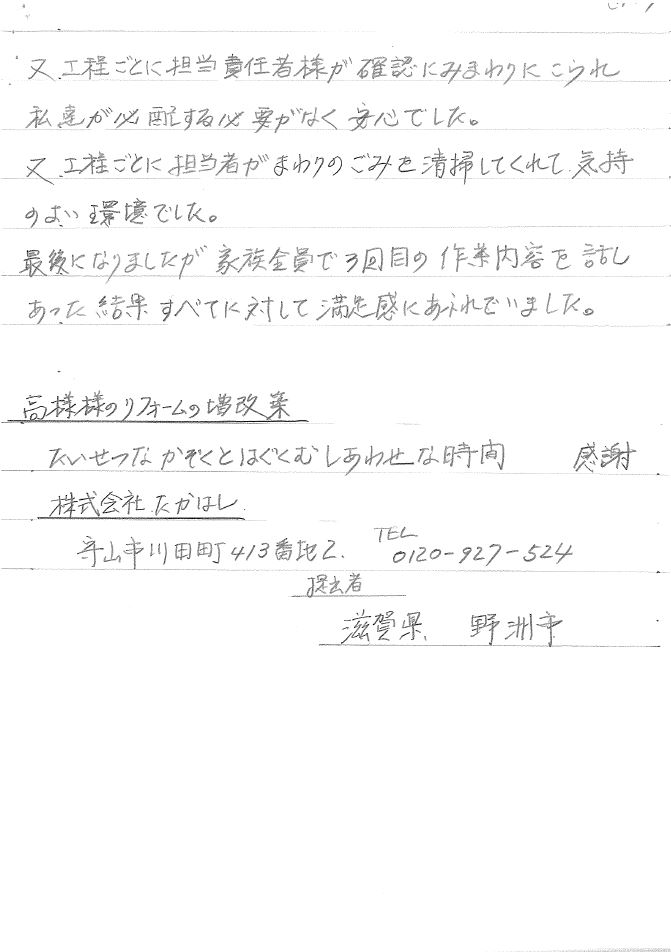 又 工程ごとに担当責任者様が確認にみまわりにこられ
私達が心配する必要がなく安心でした。
又 工程ごとに担当者がまわりのごみを清掃してくれて気持
のよい環境でした。
最後になりましたが家族全員で3回目の作業内容を話し
あった結果すべてに対して満足感にあふれていました。
高様様のリフォームの増改築
たいせつなかぞくとはぐくむしあわせな時間 感謝
株式会社たかはし
守山市川田町413番地2. TEL 0120-927-524
提出者
滋賀県 野洲市